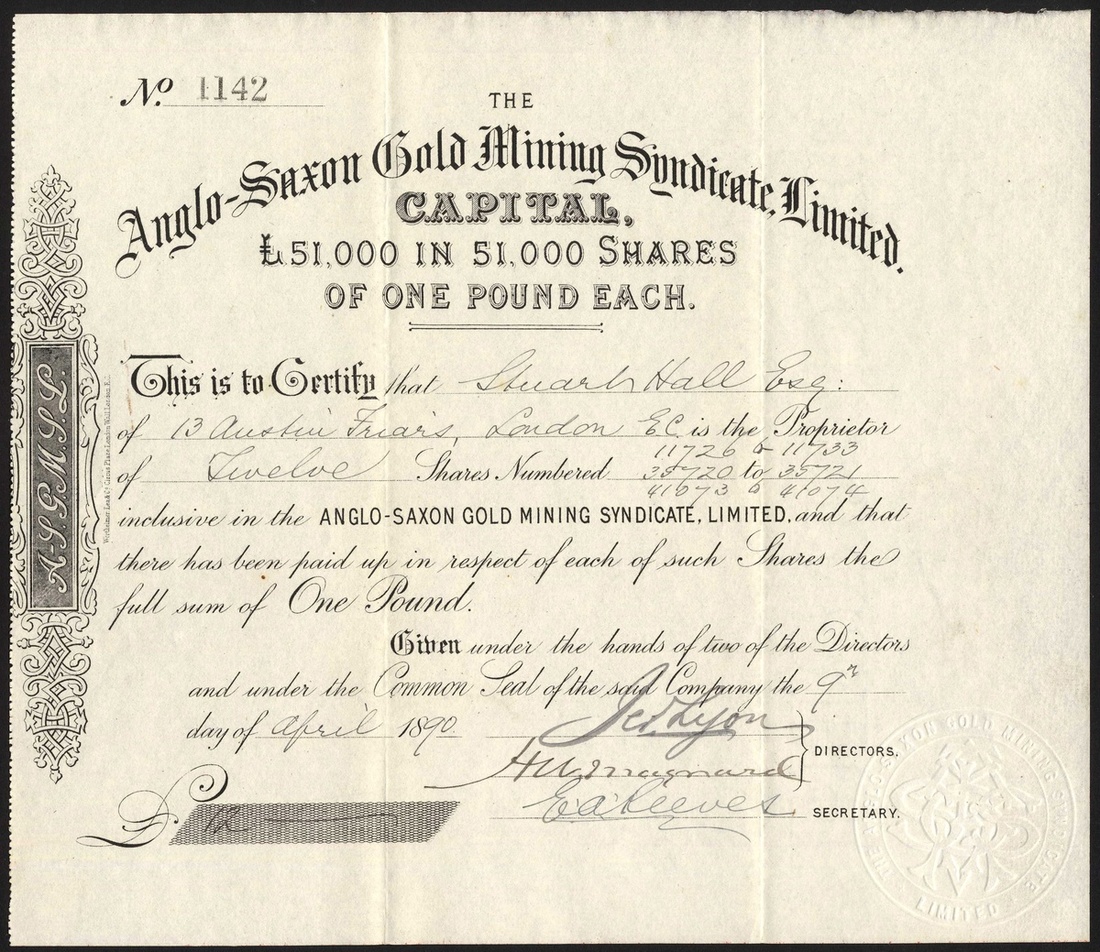 No. 1142
THE
Anglo-Saxon Gold Mining Syndicate, Limited.
CAPITAL,
£51,000 IN 51,000 SHARES
OF ONE POUND EACH.
This is to Certify that Stuart Hall Esq:
of 13 Austin Friars, London E.C. is the Proprietor
11726 11733
of Twelve Shares Numbered 35720 to 35721
41073 41074
inclusive in the ANGLO-SAXON GOLD MINING SYNDICATE, LIMITED, and that
there has been paid up in respect of each of such Shares the
full sum of One Pound.
Given under the hands of two of the Directors
and under the Common Seal of the said Company the 9
day of April 1890.
Lyon
DIRECTORS.
H Maynard
E A Reeves SECRETARY.
£ 12
A-S.G.M.S.L.
THE ANGLO-SAXON GOLD MINING SYNDICATE
LIMITED